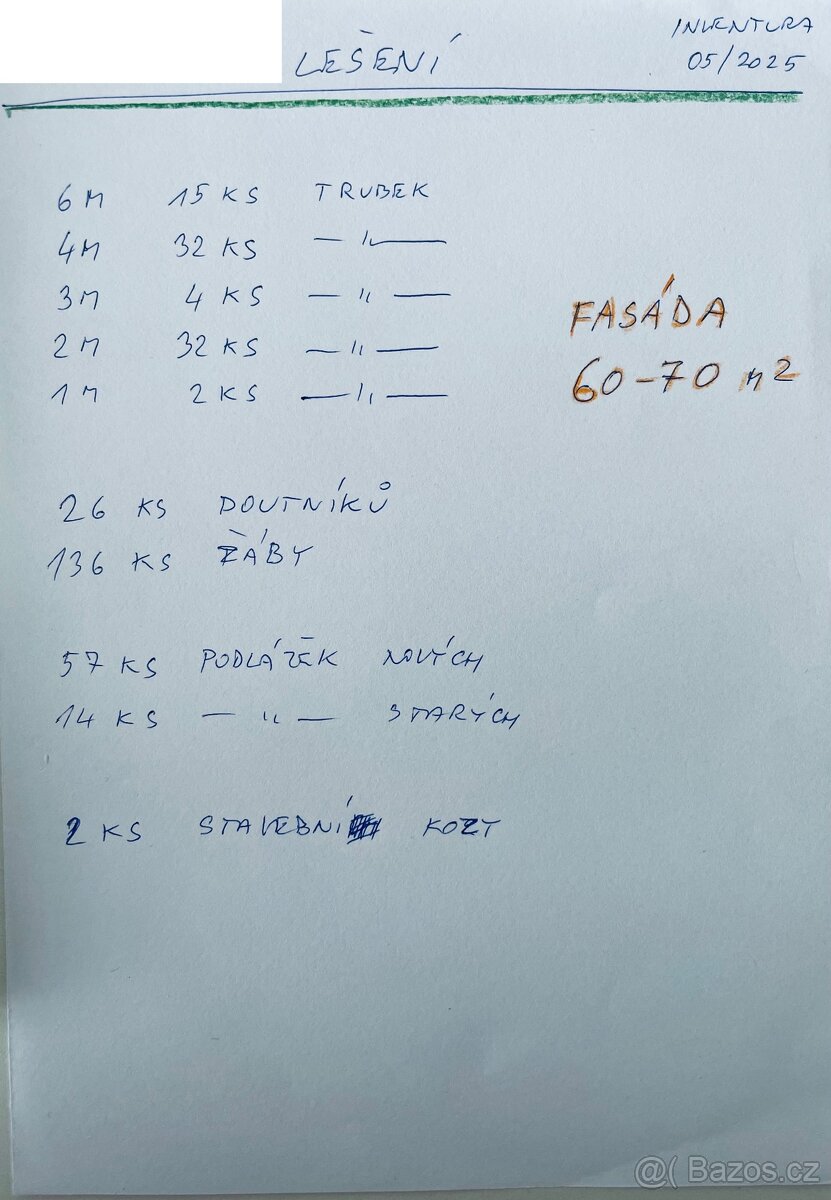 LEŠENÍ
INVENTURA
05/2025
6M 15 KS TRUBEK
4M 32 KS — " —
3M 4 KS — " —
2M 32 KS — " —
1M 2 KS — " —
FASÁDA
60-70 m2
26 KS DOUTNÍKŮ
136 KS ŽÁBY
57 KS PODLÁŽEK NOVÝCH
14 KS — " — STARÝCH
2 KS STAVEBNÍ KOZY
@( Bazos.cz